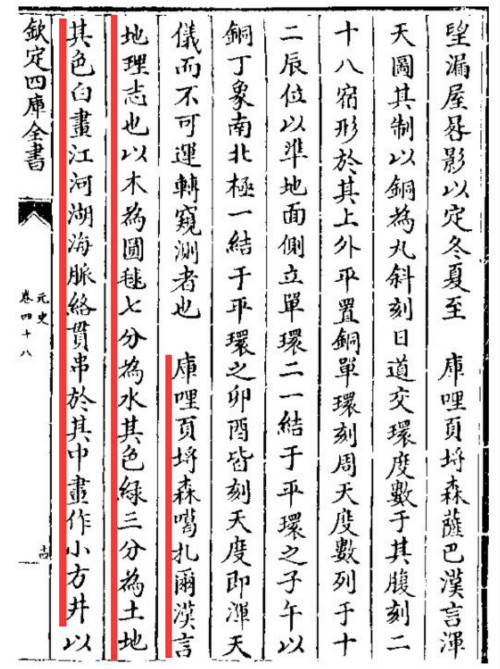 望漏屋晷影以定冬夏至　庫哩頁埒森薩巴漢言渾
天圖其制以銅為丸斜刻日道交環度數于其腹刻二
十八宿形於其上外平置銅單環刻周天度數列于十
二辰位以準地面側立單環二一結于平環之子午以
銅丁象南北極一結于平環之卯酉皆刻天度即渾天
儀而不可運轉窺測者也　庫哩頁埒森噶扎爾漢言
地理志也以木為圓毬七分為水其色緑三分為土地
其色白畫江河湖海脈絡貫串於其中畫作小方井以
欽定四庫全書
元史
卷四十八